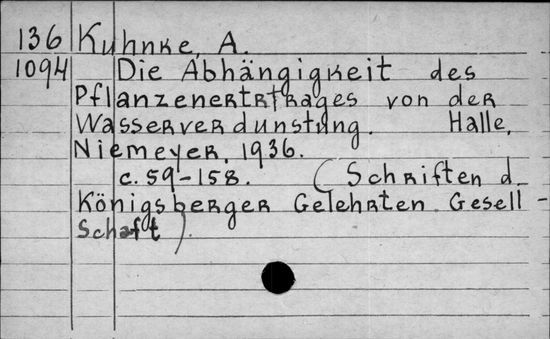 136 Kuhnke, A.
1094 Die Abhängigkeit des
Pflanzenertrtrages von der
Wasserverdunstung. Halle,
Niemeyer, 1936.
c. 59-158. (Schriften d.
Königsberger Gelehrten Gesell-
schaft).